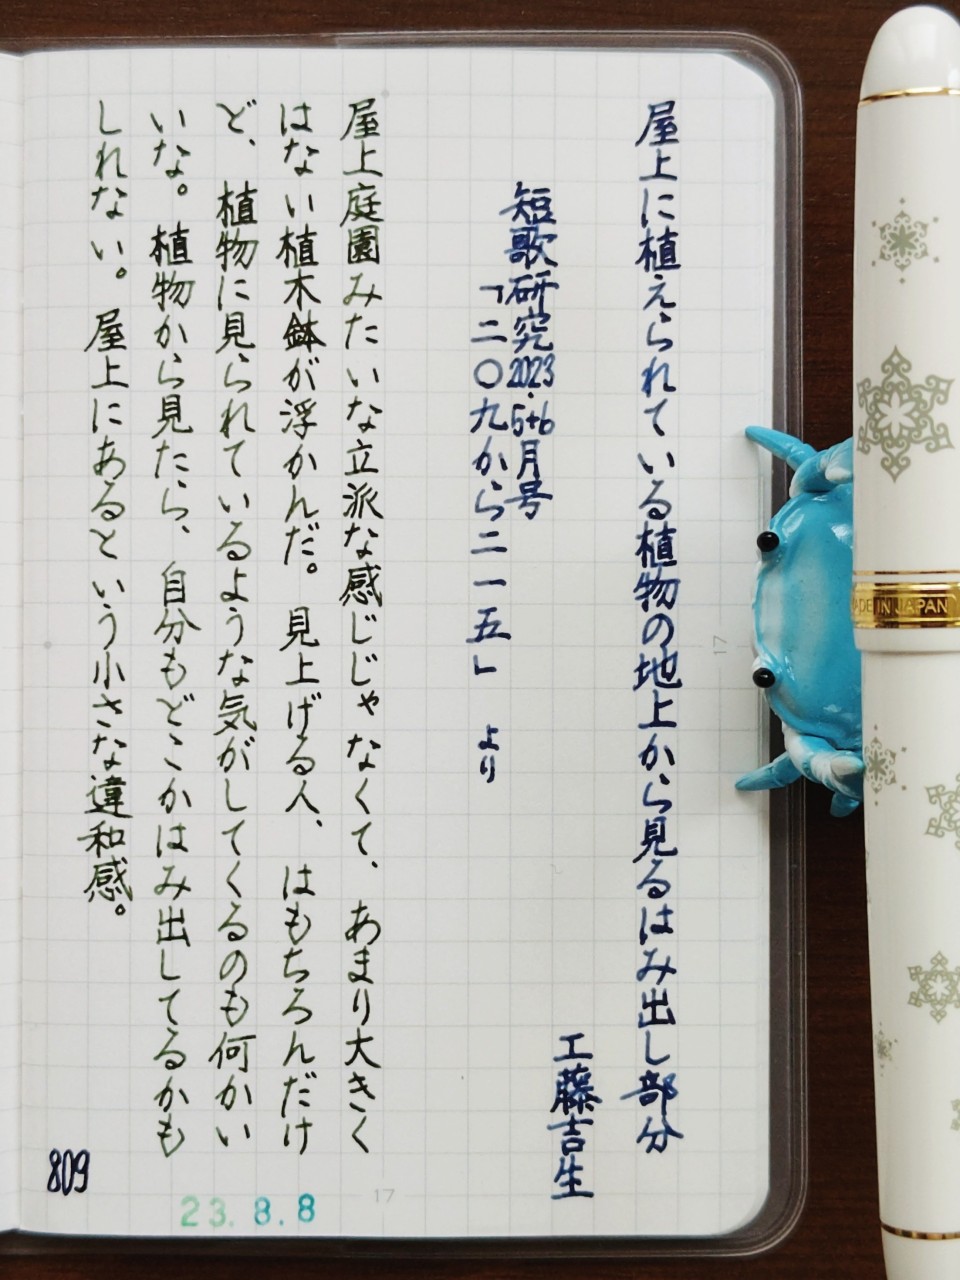 屋上に植えられている植物の地上から見るはみ出し部分
工藤吉生
短歌研究2023.5+6月号
「二〇九から二一五」より
屋上庭園みたいな立派な感じじゃなくて、あまり大きく
はない植木鉢が浮かんだ。見上げる人、はもちろんだけ
ど、植物に見られているような気がしてくるのも何かい
いな。植物から見たら、自分もどこかはみ出してるかも
しれない。屋上にあるという小さな違和感。
809
23.8.8
17
17
MADE IN JAPAN